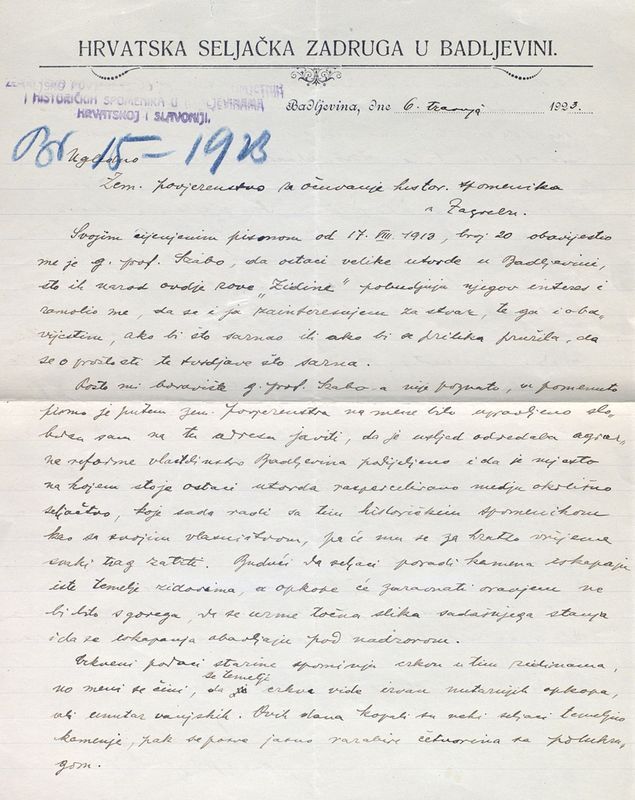 HRVATSKA SELJAČKA ZADRUGA U BADLJEVINI.
Badljevina, dne 6. travnja 1923.
I HISTORIČKIH SPOMENIKA U
HRVATSKOJ I SLAVONIJI.
Br 15-1923
Ugledno
Zem. povjerenstvo za očuvanje histor. spomenika
u Zagrebu.
Svojim cijenjenim pismom od 17. VIII. 1913, broj 20 obavijestio
me je g. prof. Szabo, da ostaci velike utvrde u Badljevini,
što ih narod ovdje zove "Zidine" pobudjuju njegov interes i
zamolio me, da se i ja zainteresujem za stvar, te ga i oba-
vijestim, ako bi što saznao ili ako bi se prilika pružila, da
se o prošlosti te tvrdjave što sazna.
Pošto mi boravište g. prof. Szabo-a nije poznato, a pomenuto
pismo je putem zem. povjerenstva na mene bilo upravljeno slo-
bodan sam na tu adresu javiti, da je usljed odredaba agrar-
ne reforme vlastelinstvo Badljevina podijeljeno i da je mjesto
na kojem stoje ostaci utvrda rasparcelirano medju okolišno
seljaštvo, koje sada radi sa tim historičkim spomenikom
kao sa svojim vlasništvom, pa će mu se za kratko vrijeme
svaki trag zatrti. Budući da seljaci poradi kamena iskapaju
iste temelje zidovima, a opkope će zaravnati oranjem ne
bi bilo s gorega, da se uzme točna slika sadašnjega stanja
i da se iskapanja obavljaju pod nadzorom.
Crkveni podaci starine spominju crkvu u tim zidinama,
no meni se čini, da se temelji crkve vide izvan nutarnjih opkopa,
ali unutar vanjskih. Ovih dana kopali su neki seljaci temeljno
kamenje, pak se posve jasno razabire četvorina sa polukru-
gom.